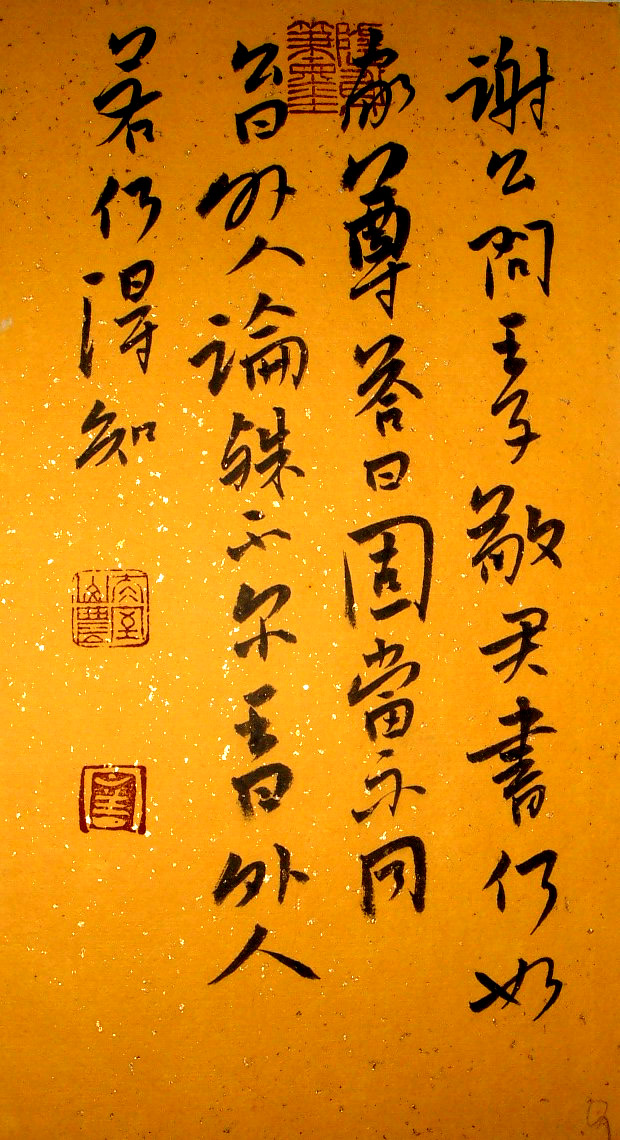 謝公問王子敬君書何如
家尊荅曰固當不同
公曰外人論殊不尔王曰外人
若何得知